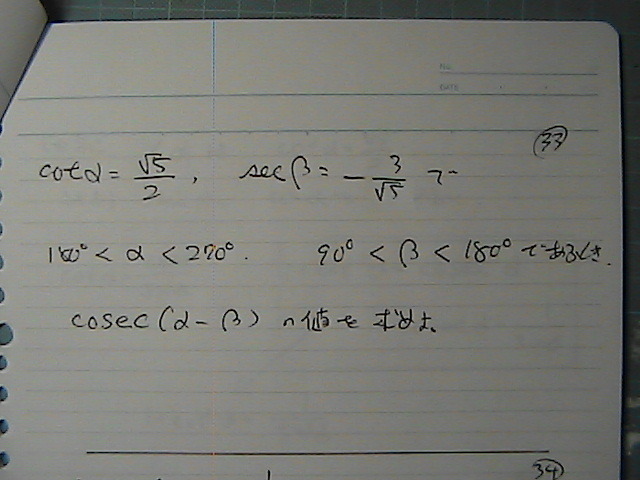 NO.
DATE
㉝
cotα = √5/2 , secβ = - 3/√5 で
180° < α < 270°. 90° < β < 180° であるとき.
cosec(α - β) の値を求めよ.
㉞